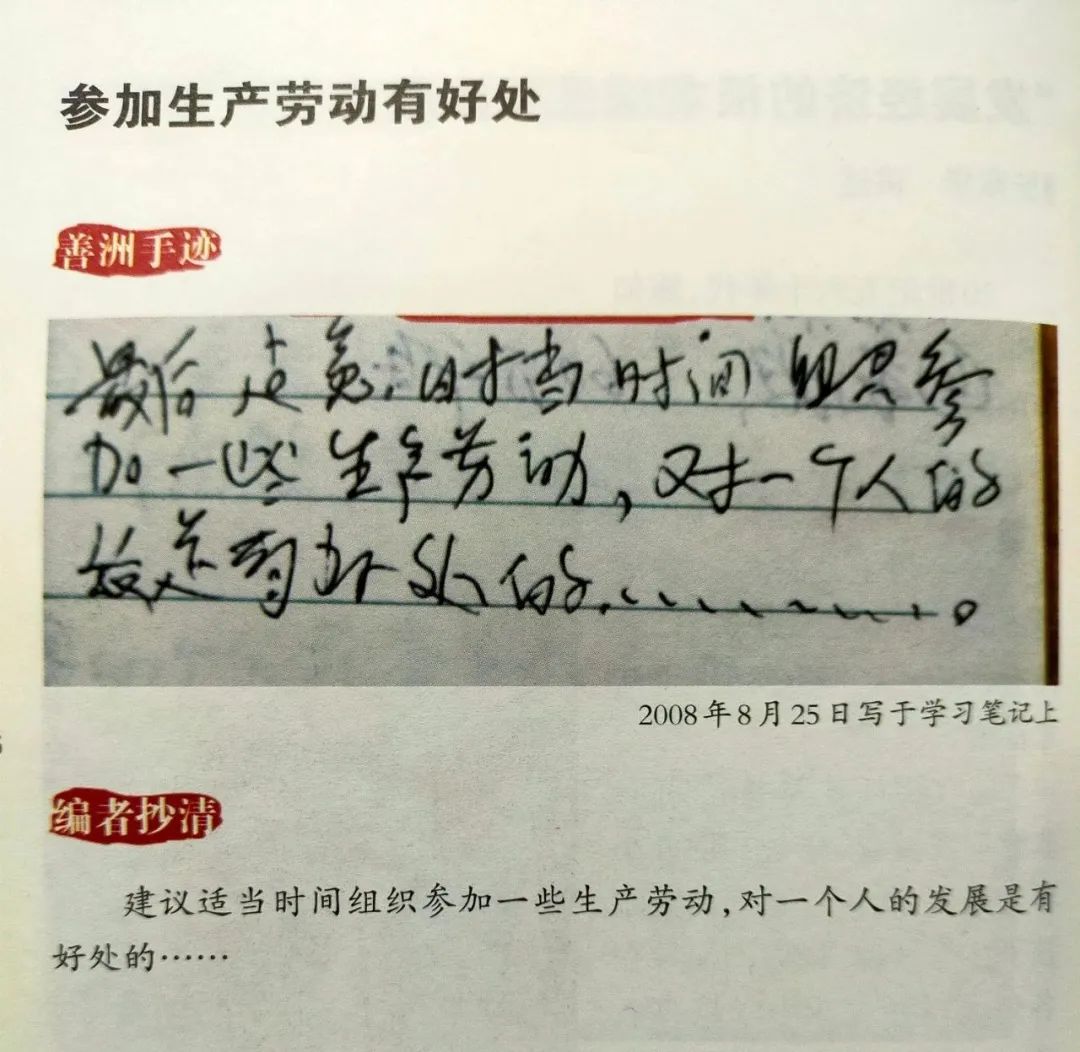 参加生产劳动有好处
善洲手迹
最后建意,时当时间组织参
加一些生产劳动,对一个人的
是有好处的
2008年8月25日写于学习笔记上
编者抄清
建议适当时间组织参加一些生产劳动,对一个人的发展是有
好处的……